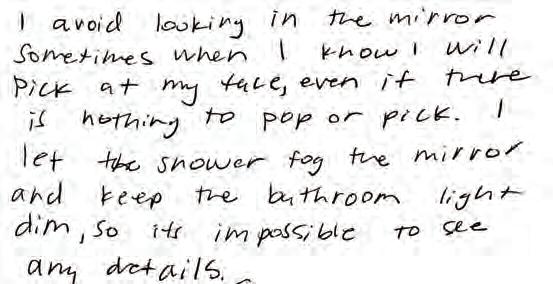 I avoid looking in the mirror
sometimes when I know I will
pick at my face, even if there
is nothing to pop or pick. I
let the shower fog the mirror
and keep the bathroom light
dim, so its impossible to see
any details.